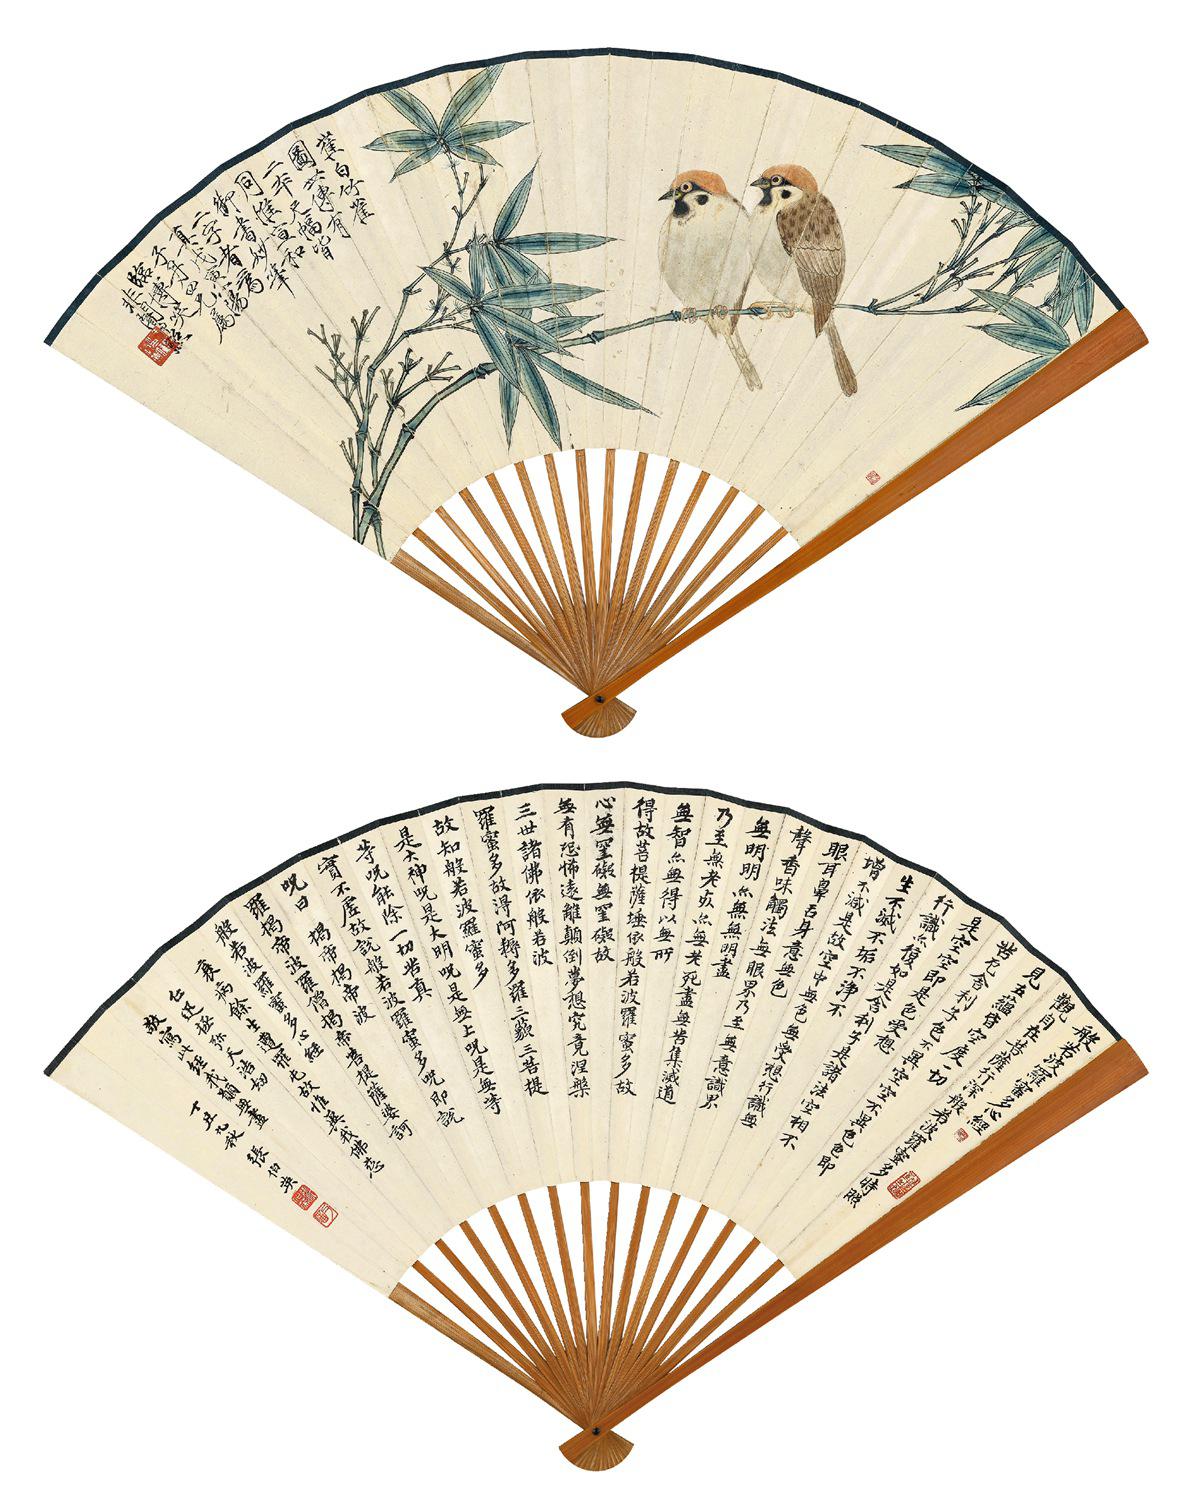 崔白竹雀
圖世傳有
二本尺幅皆
同惟宣和
御書妙筆
二字
戊寅小陽
四兄笑
臨
非闇
般若波羅蜜多心經
觀自在菩薩行深般若波羅蜜多時照
見五蘊皆空度一切
苦厄舍利子色不異空空不異色色即
是空空即是色受想
行識亦復如是舍利子是諸法空相不
生不滅不垢不淨不
增不減是故空中無色無受想行識無
眼耳鼻舌身意無色
聲香味觸法無眼界乃至無意識界
無明明亦無無明盡
乃至無老死亦無老死盡無苦集滅道
無智亦無得以無所
得故菩提薩埵依般若波羅蜜多故
心無罣礙無罣礙故
無有恐怖遠離顛倒夢想究竟涅槃
三世諸佛依般若波
羅蜜多故得阿耨多羅三藐三菩提
故知般若波羅蜜多
是大神咒是大明咒是無上咒是無等
等咒能除一切苦真
實不虛故說般若波羅蜜多咒即說
咒曰 揭帝揭帝波
羅揭帝波羅僧揭帝菩提薩婆訶
般若波羅蜜多心經
衰病餘生遭罹尤故惟冀我佛慈
仁迅拯弥天浩劫
敬寫此經我願無盡
丁丑九秋 張伯英